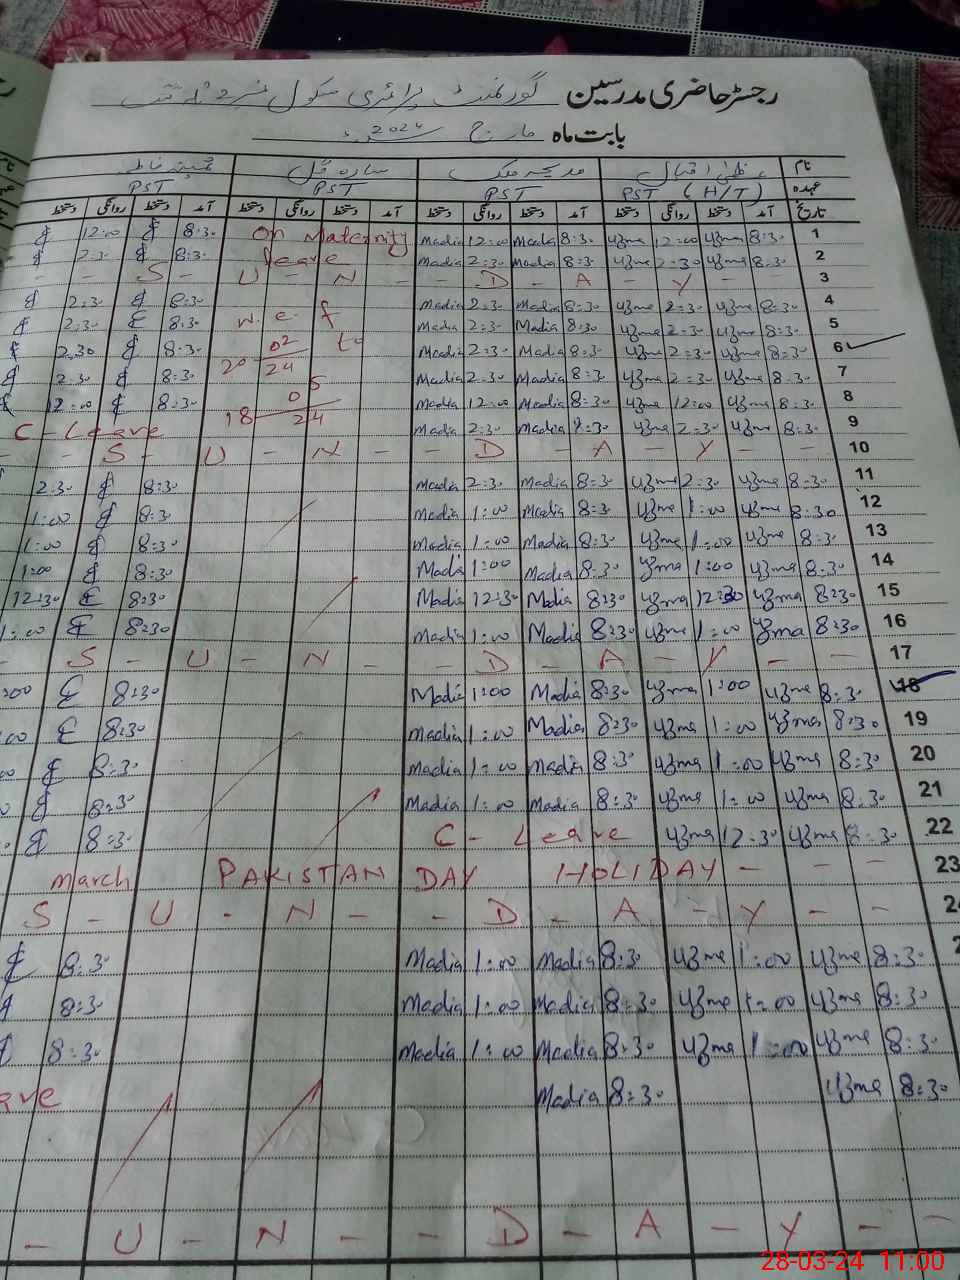 رجسٹر حاضری مدرسین گورنمنٹ پرائمری سکول نمبر 2
بابت ماہ مارچ 2024
نام عظمیٰ اقبال مدیحہ ملک سارہ گل ثمینہ فاطمہ
عہدہ PST (H/T) PST PST PST
تاریخ آمد دستخط روانگی دستخط آمد دستخط روانگی دستخط آمد دستخط روانگی دستخط آمد دستخط روانگی دستخط
12:00 8:30 On Maternity Madia 12:00 Madia 8:30 12:00 8:30 1
2:30 8:30 leave Madia 2:30 Madia 8:30 2:30 8:30 2
- - S - U - N - - D - A - Y - - 3
2:30 8:30 Madia 2:30 Madia 8:30 2:30 8:30 4
2:30 8:30 w.e.f Madia 2:30 Madia 8:30 2:30 8:30 5
2:30 8:30 20 02 24 to Madia 2:30 Madia 8:30 2:30 8:30 6
2:30 8:30 Madia 2:30 Madia 8:30 2:30 8:30 7
12:00 8:30 18 05 24 Madia 12:00 Madia 8:30 12:00 8:30 8
C - Leave Madia 2:30 Madia 8:30 2:30 8:30 9
- - S - U - N - - D - A - Y - - 10
2:30 8:30 Madia 2:30 Madia 8:30 2:30 8:30 11
1:00 8:30 Madia 1:00 Madia 8:30 1:00 8:30 12
1:00 8:30 Madia 1:00 Madia 8:30 1:00 8:30 13
1:00 8:30 Madia 1:00 Madia 8:30 1:00 8:30 14
12:30 8:30 Madia 12:30 Madia 8:30 12:30 8:30 15
1:00 8:30 Madia 1:00 Madia 8:30 1:00 8:30 16
- S - U - N - - D - A - Y - - 17
:00 8:30 Madia 1:00 Madia 8:30 1:00 8:30 18
00 8:30 Madia 1:00 Madia 8:30 1:00 8:30 19
8:30 Madia 1:00 Madia 8:30 1:00 8:30 20
8:30 Madia 1:00 Madia 8:30 1:00 8:30 21
8:30 C - Leave 12:30 8:30 22
March PAKISTAN DAY HOLIDAY - - - 23
S - U - N - - D - A - Y - -
8:30 Madia 1:00 Madia 8:30 1:00 8:30
8:30 Madia 1:00 Madia 8:30 1:00 8:30
8:30 Madia 1:00 Madia 8:30 1:00 8:30
Madia 8:30 8:30
- U - N - - D - A - Y - -
28-03-24 11:00